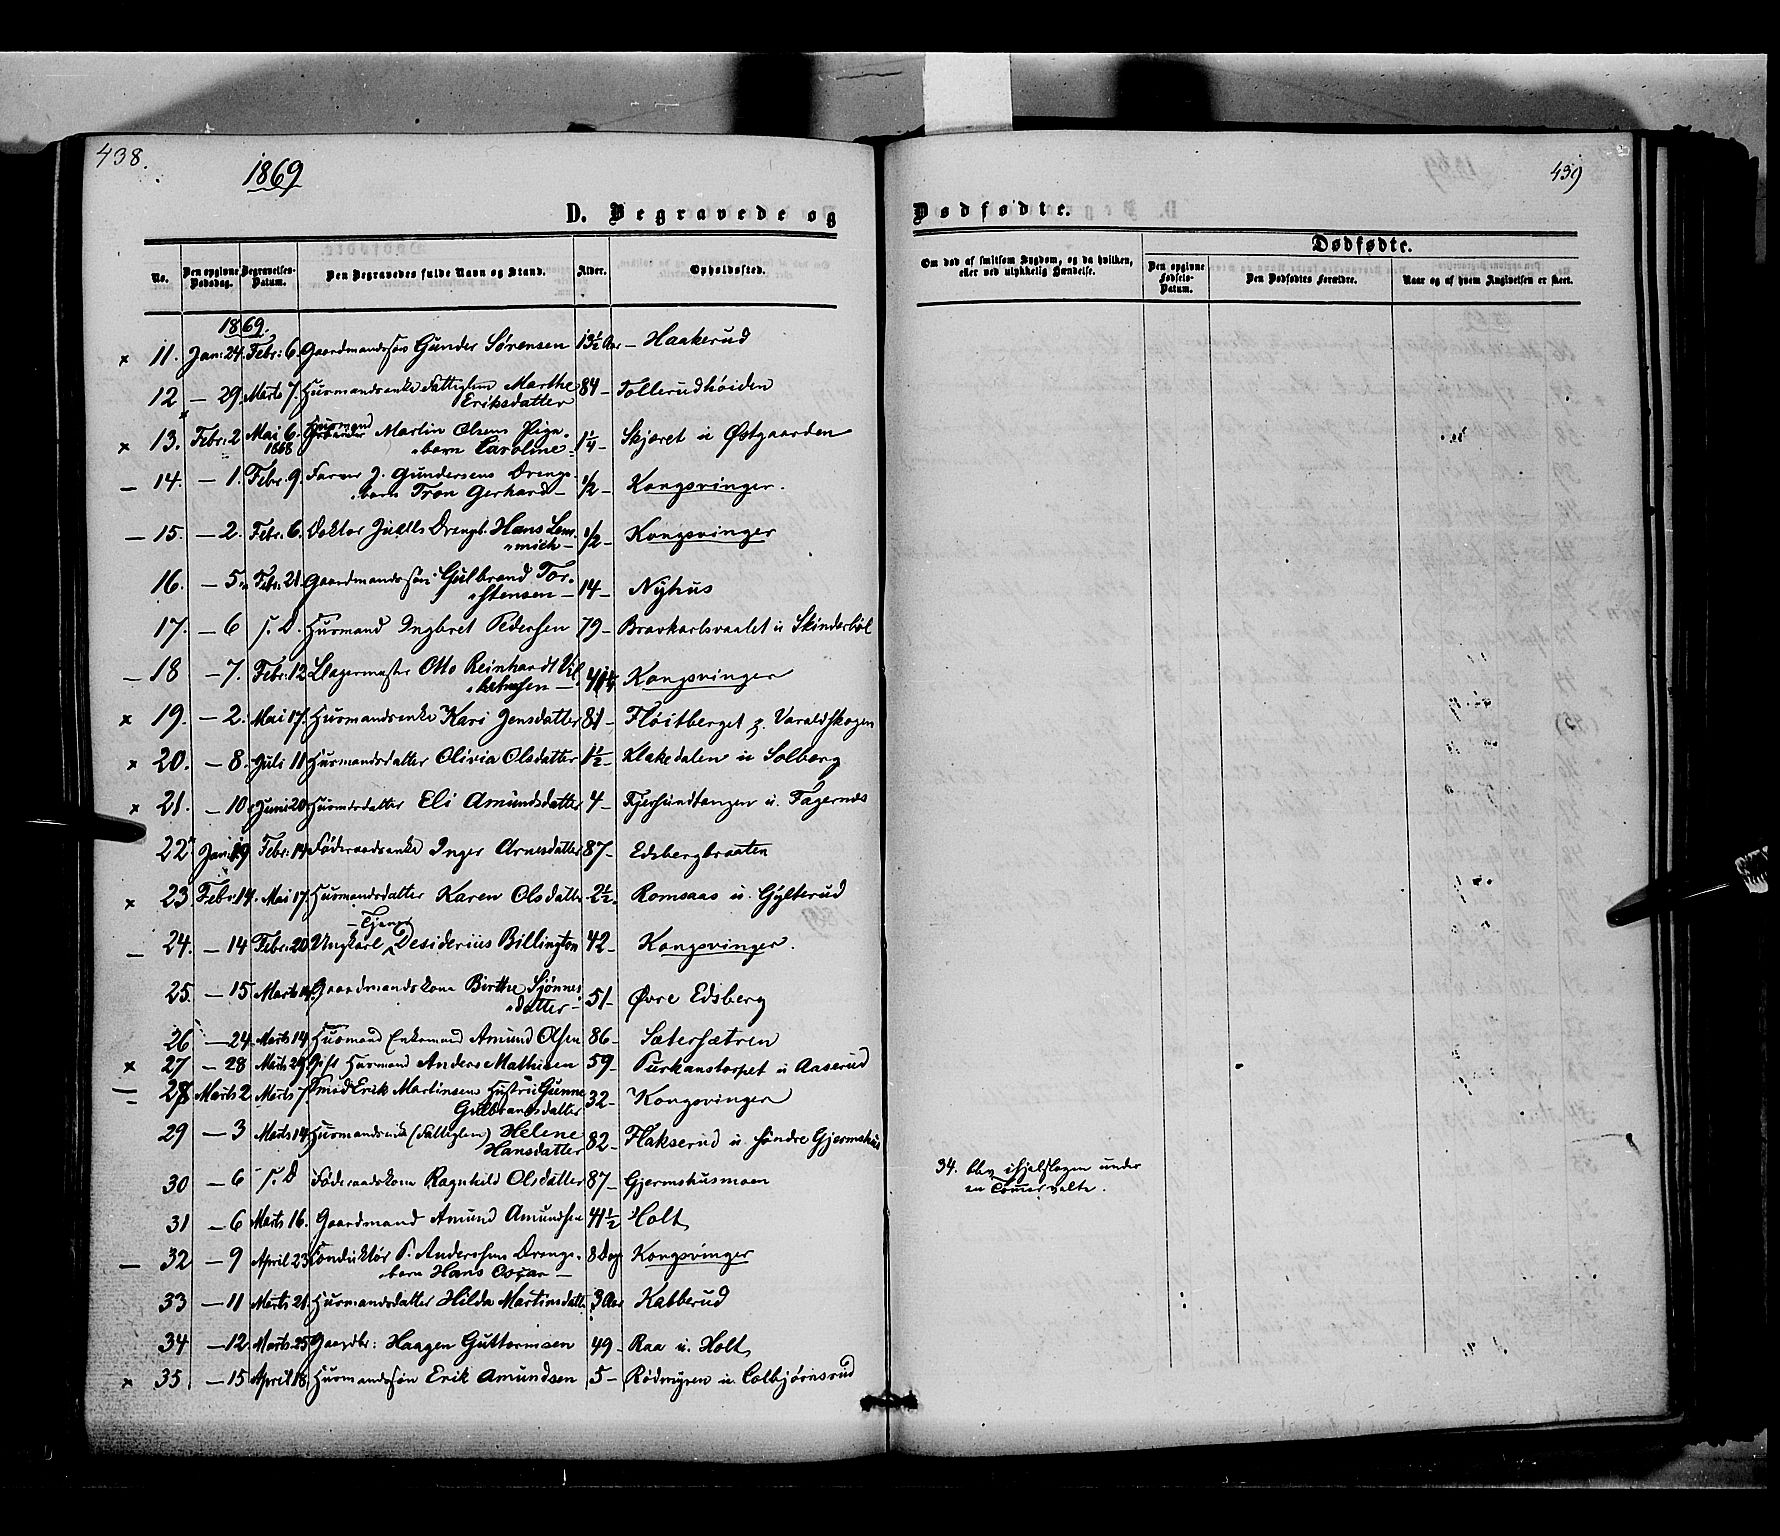 438.
1869
D. Begravede og
No. Den opgivne Dødsdag. Begravelses-Datum. Den Begravedes fulde Navn og Stand. Alder. Opholdssted.
1869.
× 11. Jan: 24. Febr: 6. Gaardmandssøn Gunder Sørensen 13½ Aar – Haakerud
12 – 29. Marts 7. Huusmandsenke Fattiglem Marthe 84 – Tollerudhøiden
Eriksdatter
× 13. Febr: 2 Mai 6. Huusmand Martin Olsens Pige- 1¼ – Skjæret u Østgaarden
1868 barn Caroline –
– 14. – 1. Febr. 9. Farver J. Gundersens Drenge- ½ – Kongsvinger.
barn Tron Gerhard –
– 15. – 2. Febr. 6. Doktor Juells Drengb. Hans Lem- ½ – Kongsvinger
mich –
16. – 5. Febr. 21. Gaardmandssøn Gulbrand Tor- 14 – Nyhus
stensen –
17. – 6 s. D. Huusmand Ingbret Pedersen 79 – Bravkarlsvaalet u Skinderbøl
– 18 – 7. Febr. 12 Otto Reinhardt Vil- Kongsvinger
helmsen –
× 19. – 2. Mai 17. Huusmandsenke Kari Jensdatter 81 – Fløitberget p. Varaldskogen
× 20. – 8. Juli 11 Huusmandsdatter Olivia Olsdatter 1½ – Klakedalen u Solberg
× 21. – 10. Juni 20. Huusmdsdatter Eli Amundsdatter 4 – Tjersundtangen u. Fagernæs
22 Jan: 19 Febr. 14 Føderaadsenke Inger Arnesdatter 87 – Edsbergbraaten
× 23. Febr: 14. Mai 17. Huusmandsdatter Karen Olsdatter 2½. Romsaas u. Gylterud
– Tjener
– 24. – 14 Febr. 20 Ungkarl Desiderius Billington 42 – Kongsvinger.
25. – 15 Marts 14. Gaardmandskone Birthe Sjønnes- 51 – Øvre Edsberg
datter –
26 – 24. Marts 14 Huusmand Enkemand Amund Olsen 86 – Sætersætren
× 27 – 28 Marts 29. Gift Huusmand Anders Mathisen 59 – Purkanstorpet u Aaserud
– 28 Marts 2. Marts 7 Smed Erik Martinsens Hustru Gunne 32 – Kongsvinger
Gulbrandsdatter
29 – 3 Marts 14. Huusmandsenke (Fattiglem) Helene 82 – Flakserud u. søndre Gjermshus
Hansdatter
30 – 6 s. D Føderaadskone Ragnhild Olsdatter 87 – Gjermshusmoen
31 – 6 Marts 16. Gaardmand Amund Amundsen 41½ Holt
– 32 – 9 April 23 Konduktør P. Andersens Drenge- 8 Dage Kongsvinger
barn Hans Oscar –
33 – 11 Marts 21. Huusmandsdatter Hilda Martinsdatter 3 Aar Kabberud
34 – 12. Marts 25 Gaardbr: Haagen Guttormsen 49 – Raa u. Holt
× 35 – 15 April 18. Huusmandssøn Erik Amundsen 5 – Rødmyren u. Colbjørnsrud
439
Dødfødte.
Om død af smitsom Sygdom, og da hvilken, eller ved ulykkelig Hændelse. Dødfødte. Den opgivne Fødsels-Datum. Den Dødfødtes Forældre. Naar og af hvem Angivelsen er skeet.
34. blev ihjelslagen under
en Tømmervelte.